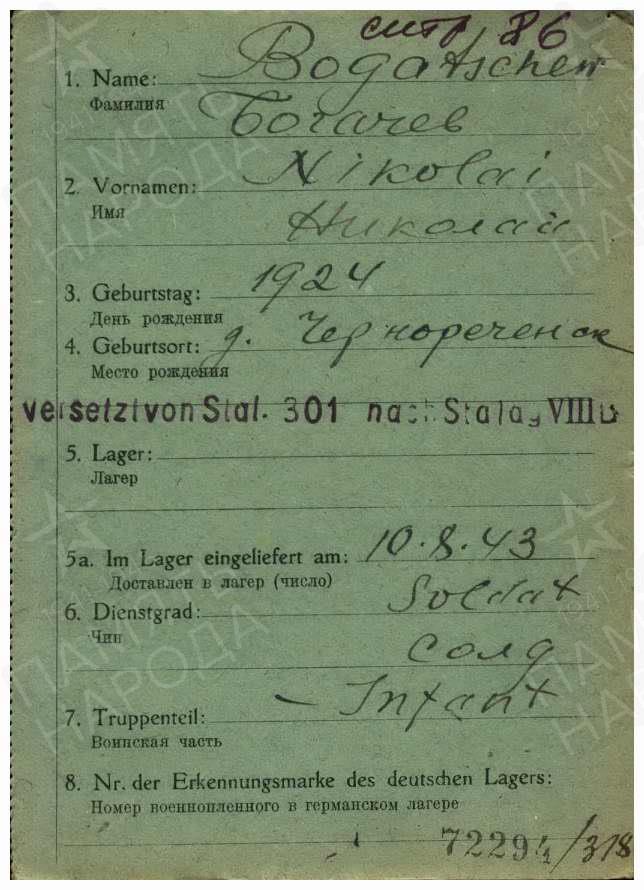 стр 86
1. Name: Bogatschew
Фамилия
Богачев
2. Vornamen: Nikolai
Имя
Николай
3. Geburtstag: 1924
День рождения
4. Geburtsort: д. Чернореченск
Место рождения
versetzt von Stal. 301 nach Stalag VIII B
5. Lager:
Лагер
5a. Im Lager eingeliefert am: 10.8.43
Доставлен в лагер (число)
6. Dienstgrad: Soldat
Чин
солд
7. Truppenteil: – Infant
Воинская часть
8. Nr. der Erkennungsmarke des deutschen Lagers:
Номер военнопленного в германском лагере
72294/318
ПАМЯТЬ
НАРОДА